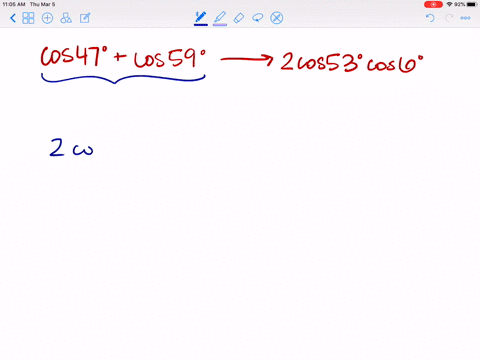 11:05 AM Thu Mar 5
92%
cos47° + cos59° → 2cos53° cos6°
2 co